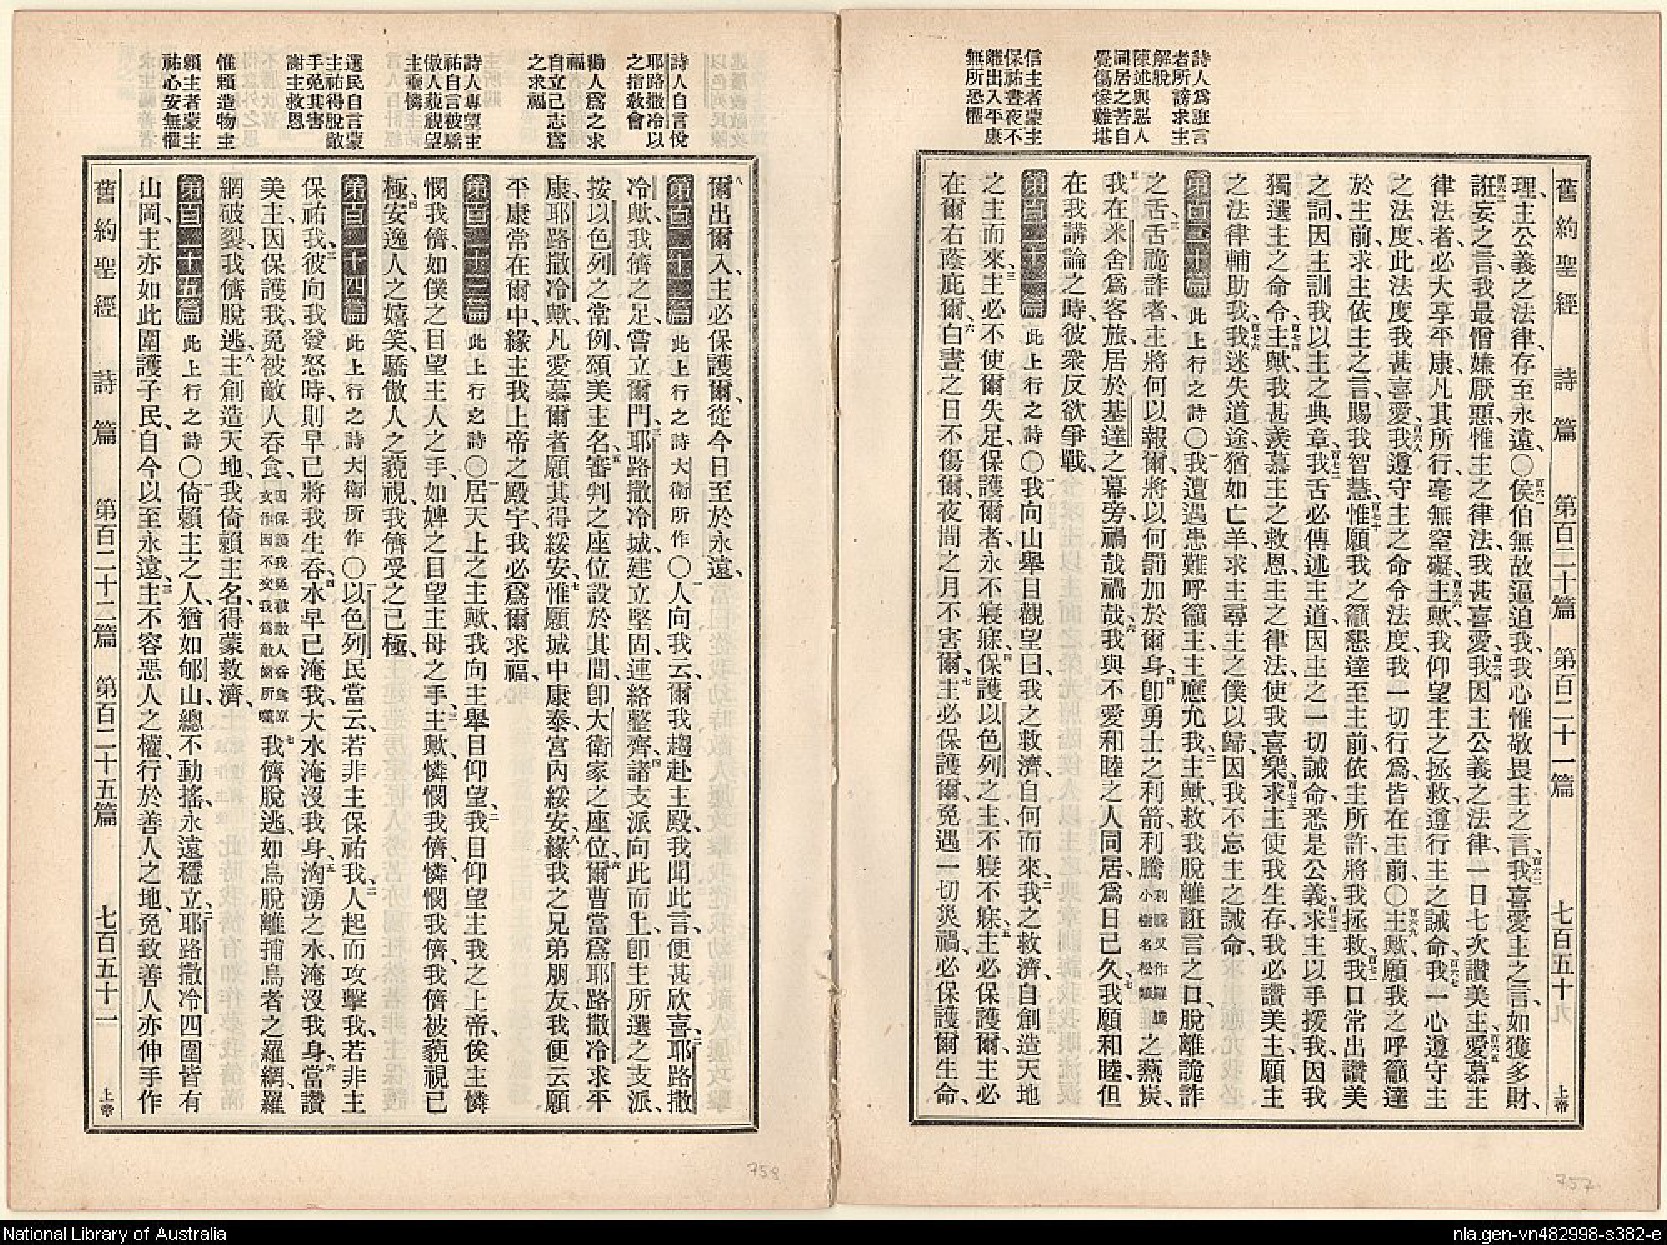 詩人為誑言
者所謗求主
解脫
陳述與惡人
同居之苦自
覺傷慘難堪
信主者蒙主
保祐晝夜不
離出入平康
無所恐懼
舊約聖經 詩篇 第百二十篇 第百二十一篇 七百五十九 上帝
理、主公義之法律、存至永遠、〇侯伯無故逼迫我、我心惟敬畏主之言、我喜愛主之言、如獲多財、
誑妄之言、我最憎嫌厭惡、惟主之律法、我甚喜愛、我因主公義之法律、一日七次讚美主、愛慕主
律法者、必大享平康、凡其所行、毫無窒礙、主歟、我仰望主之拯救、遵行主之誡命、我一心遵守主
之法度、此法度我甚喜愛、我遵守主之命令法度、我一切行為、皆在主前、〇主歟、願我之呼籲達
於主前、求主依主之言、賜我智慧、惟願我之籲懇達至主前、依主所許、將我拯救、我口常出讚美
之詞、因主訓我以主之典章、我舌必傳述主道、因主之一切誡命、悉是公義、求主以手援我、因我
獨選主之命令、主歟、我甚羨慕主之救恩、主之律法、使我喜樂、求主使我生存、我必讚美主、願主
之法律輔助我、我迷失道途、猶如亡羊、求主尋主之僕以歸、因我不忘主之誡命、
第百二十篇 此上行之詩〇我遭遇患難呼籲主、主應允我、主歟、救我脫離誑言之口、脫離詭詐
之舌、舌詭詐者、主將何以報爾、將以何罰加於爾身、即勇士之利箭、利騰 之燕炭、
我在米舍為客旅、居於基達之幕旁、禍哉禍哉、我與不愛和睦之人同居、為日已久、我願和睦、但
在我講論之時、彼衆反欲爭戰、
第百二十一篇 此上行之詩〇我向山舉目觀望曰、我之救濟、自何而來、我之救濟、自創造天地
之主而來、主必不使爾失足、保護爾者、永不寢寐、保護以色列之主、不寢不寐、主必保護爾、主必
在爾右蔭庇爾、白晝之日不傷爾、夜間之月不害爾、主必保護爾、免遇一切災禍、必保護爾生命、
詩人自言悅
耶路撒冷以
之指敎會
揚人爲之求
福
自立己志爲
之求福
詩人專望主
祐自言被驕
傲人藐視望
主垂憐
選民自言蒙
主祐得脫敵
手免其害
謝主救恩
惟賴造物主
賴主者蒙主
祐心安無懼
爾出爾入、主必保護爾、從今日至於永遠、
第百二十二篇 此上行之詩大衛所作〇人向我云、爾我趨赴主殿、我聞此言、便甚欣喜、耶路撒
冷歟、我儕之足、嘗立爾門、耶路撒冷城、建立堅固、連絡整齊、諸支派向此而上、即主所選之支派、
按以色列之常例、頌美主名、審判之座位設於其間、即大衛家之座位、爾曹當為耶路撒冷求平
康、耶路撒冷歟、凡愛慕爾者、願其得綏安、惟願城中康泰、宮內綏安、緣我之兄弟朋友、我便云、願
平康常在爾中、緣主我上帝之殿宇、我必為爾求福、
第百二十三篇 此上行之詩〇居天上之主歟、我向主舉目仰望、我目仰望主我之上帝、俟主憐
憫我儕、如僕之目望主人之手、如婢之目望主母之手、主歟、憐憫我儕、憐憫我儕、我儕被藐視已
極、安逸人之嬉笑、驕傲人之藐視、我儕受之已極、
第百二十四篇 此上行之詩大衛所作〇以色列民當云、若非主保祐我、人起而攻擊我、若非主
保祐我、彼向我發怒時、則早已將我生吞、水早已淹我、大水淹沒我身、洶湧之水、淹沒我身、當讚
美主、因保護我、免被敵人吞食、 我儕脫逃、如鳥脫離捕鳥者之羅網、羅
網破裂、我儕脫逃、主創造天地、我倚賴主名、得蒙救濟、
第百二十五篇 此上行之詩〇倚賴主之人、猶如郇山、總不動搖、永遠穩立、耶路撒冷四圍皆有
山岡、主亦如此圍護子民、自今以至永遠、主不容惡人之權、行於善人之地、免致善人亦伸手作
舊約聖經 詩篇 第百二十二篇 第百二十五篇 七百五十二 上帝
758
757
National Library of Australia
nla.gen-vn482998-s382-e